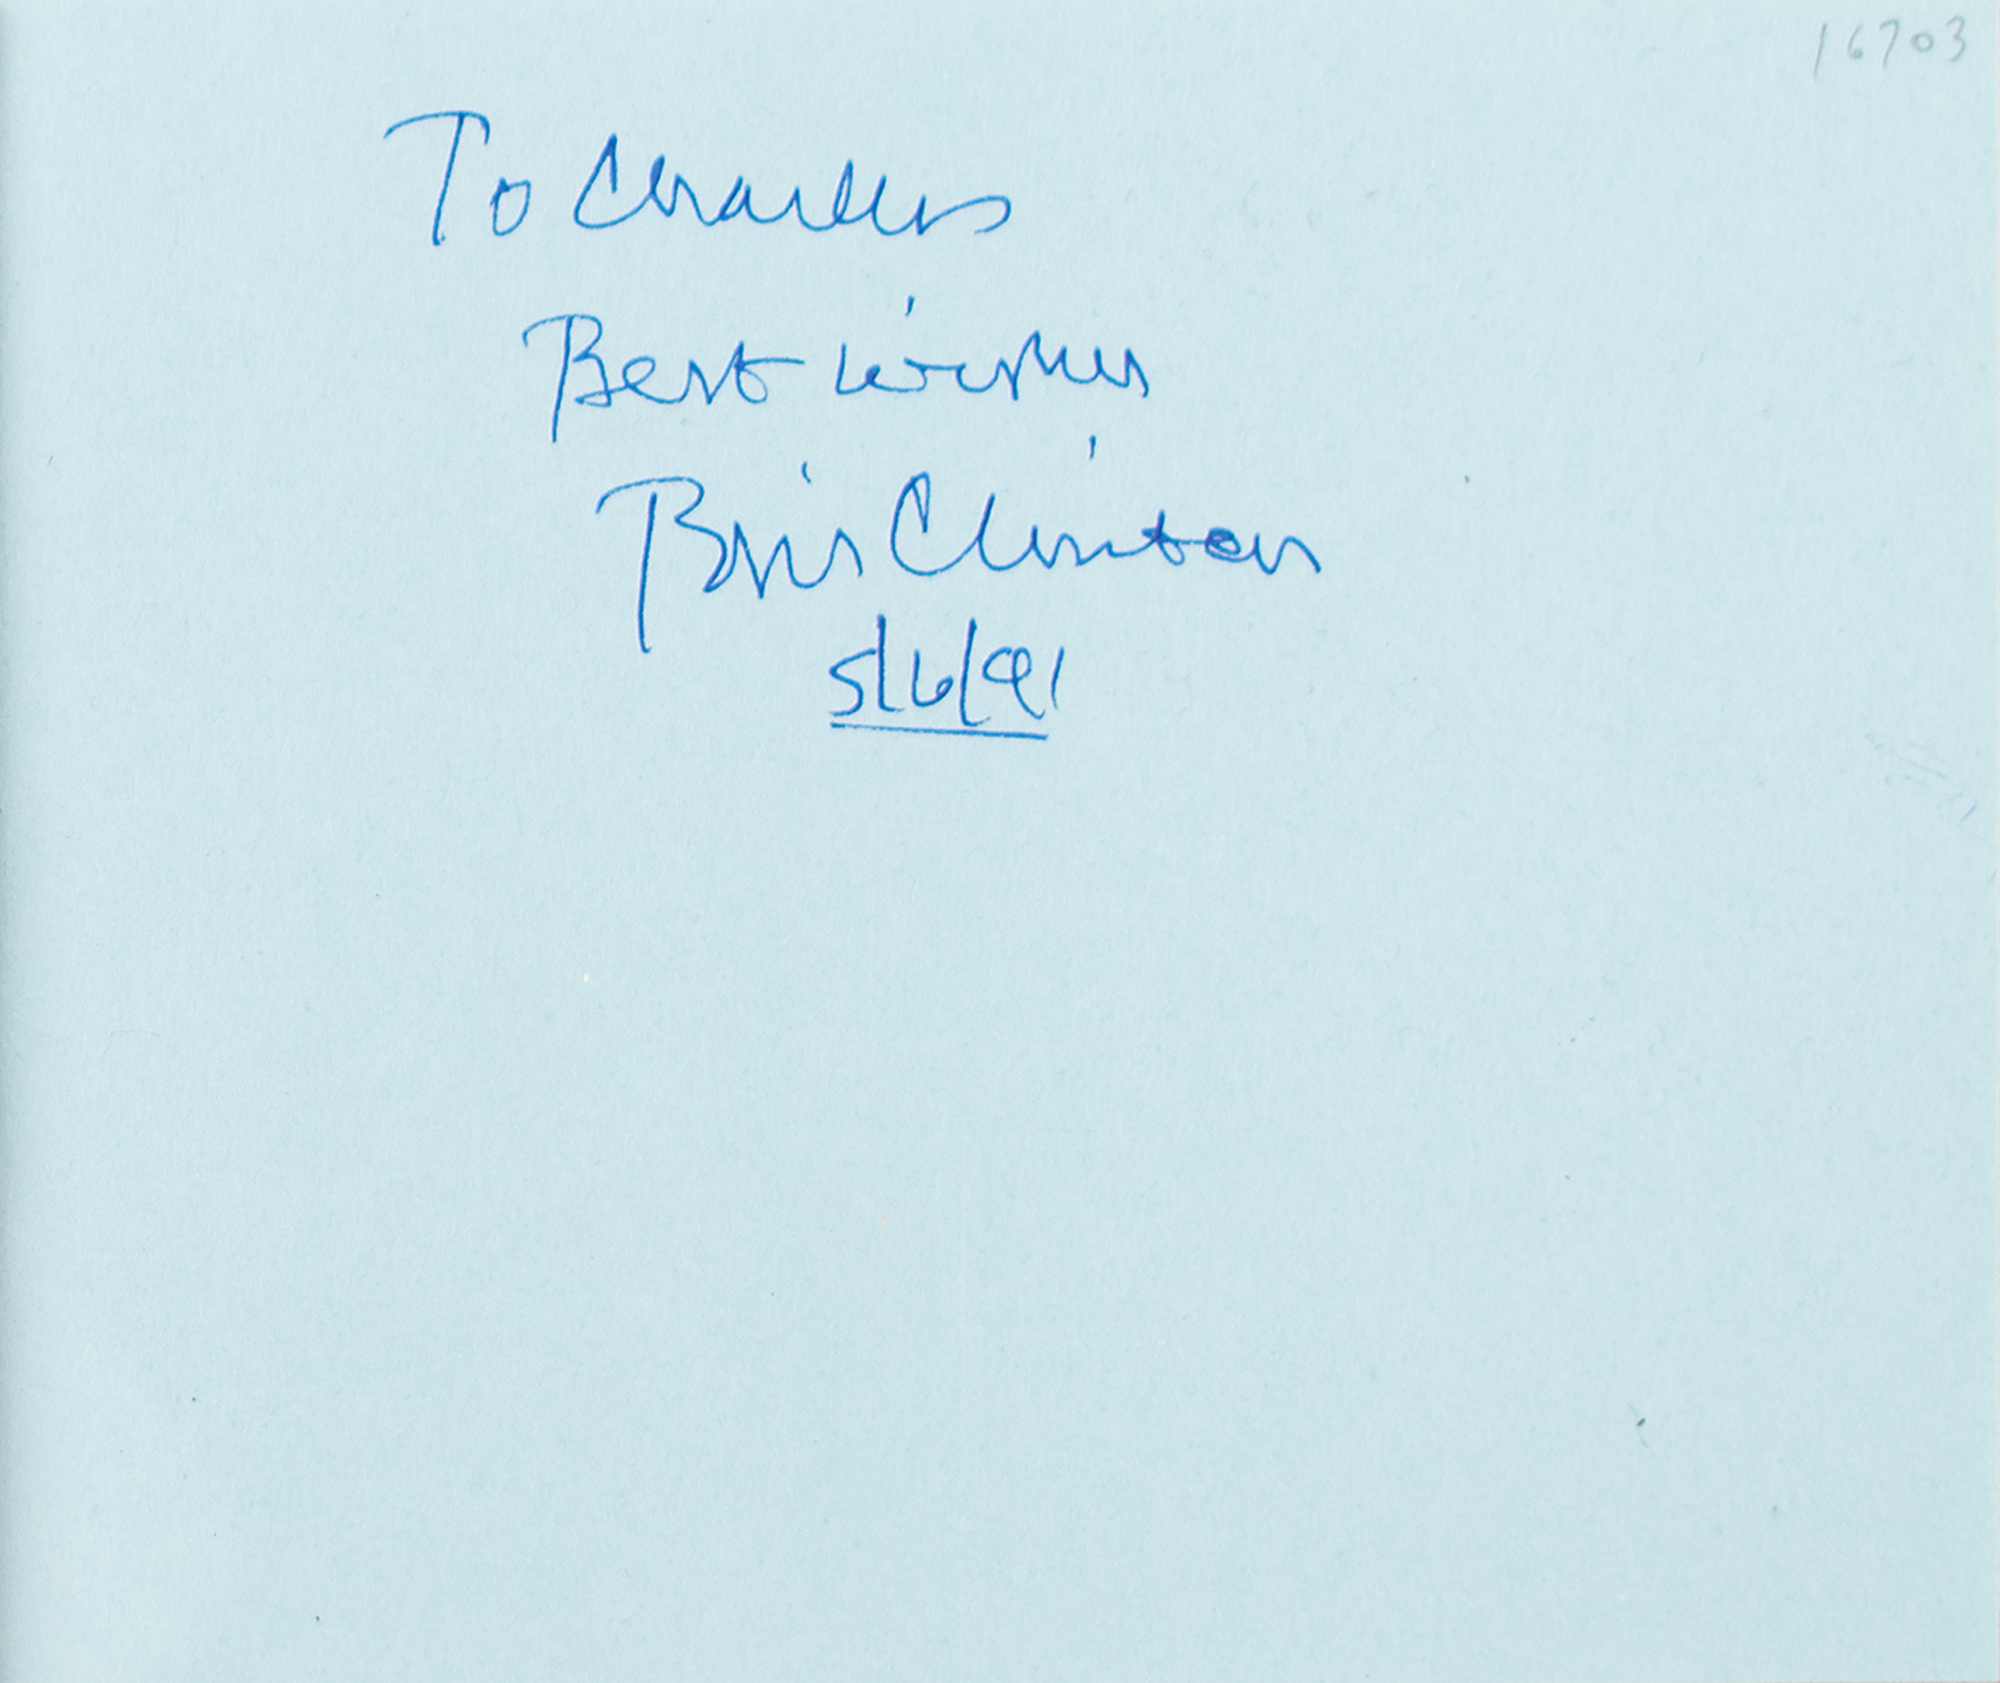 16703
To Charles
Best wishes
Clinton
5/6/91